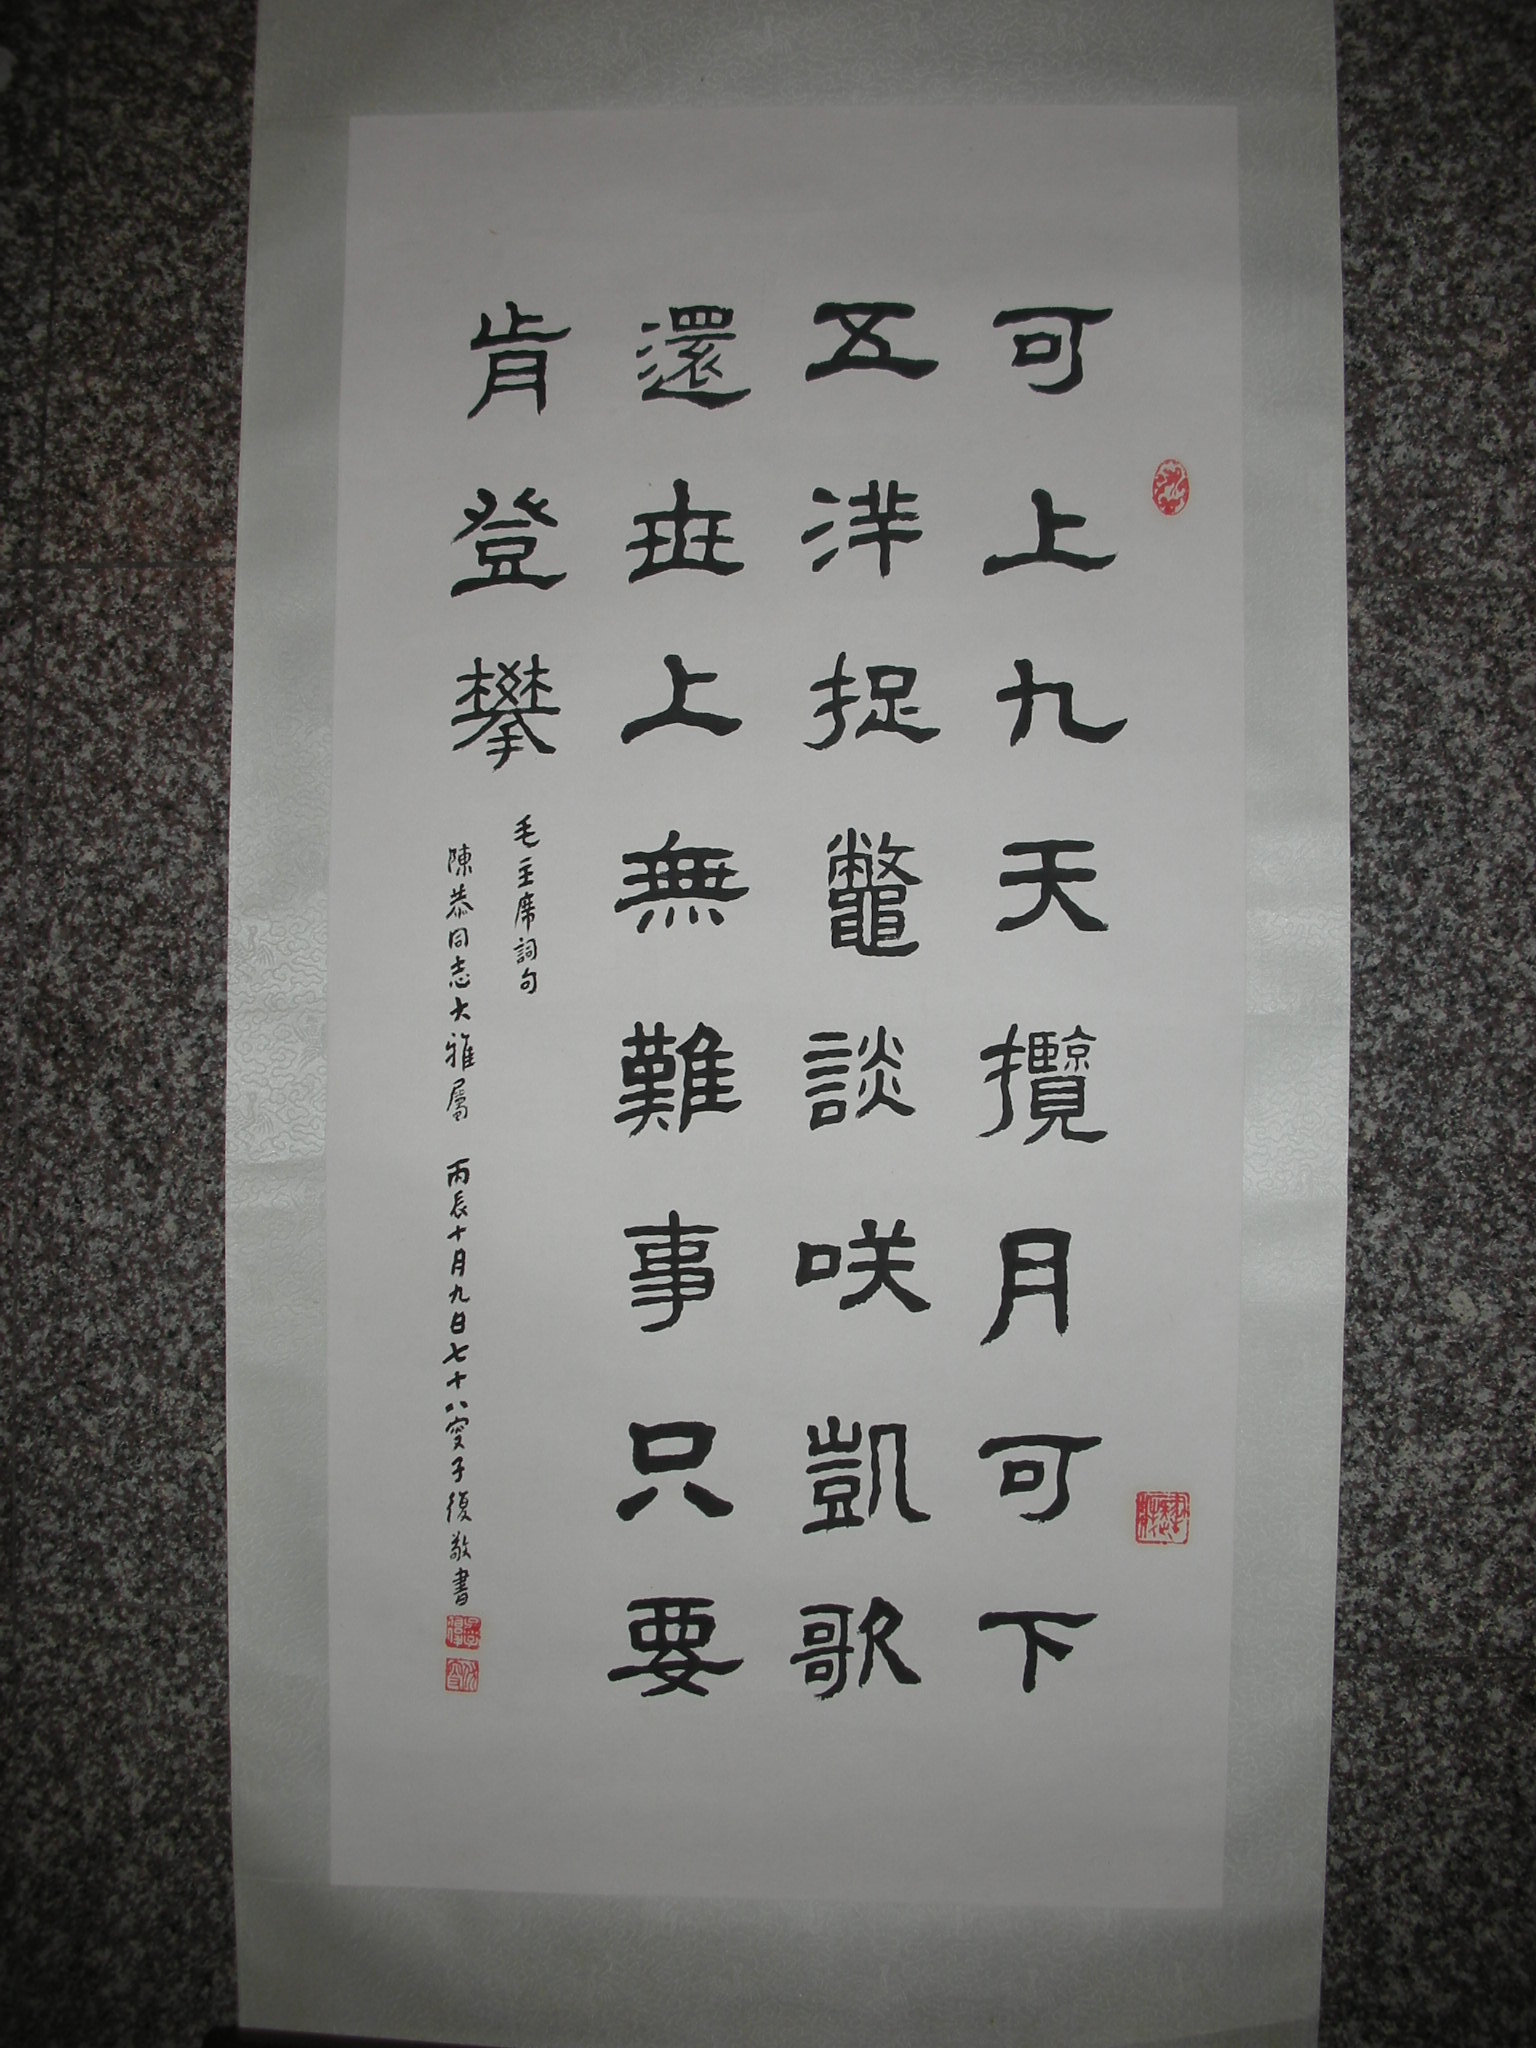 可上九天攬月可下
五洋捉鼈談咲凱歌
還世上無難事只要
肯登攀
毛主席詞句
陳恭同志大雅屬 丙辰十月九日七十八叟子復敬書